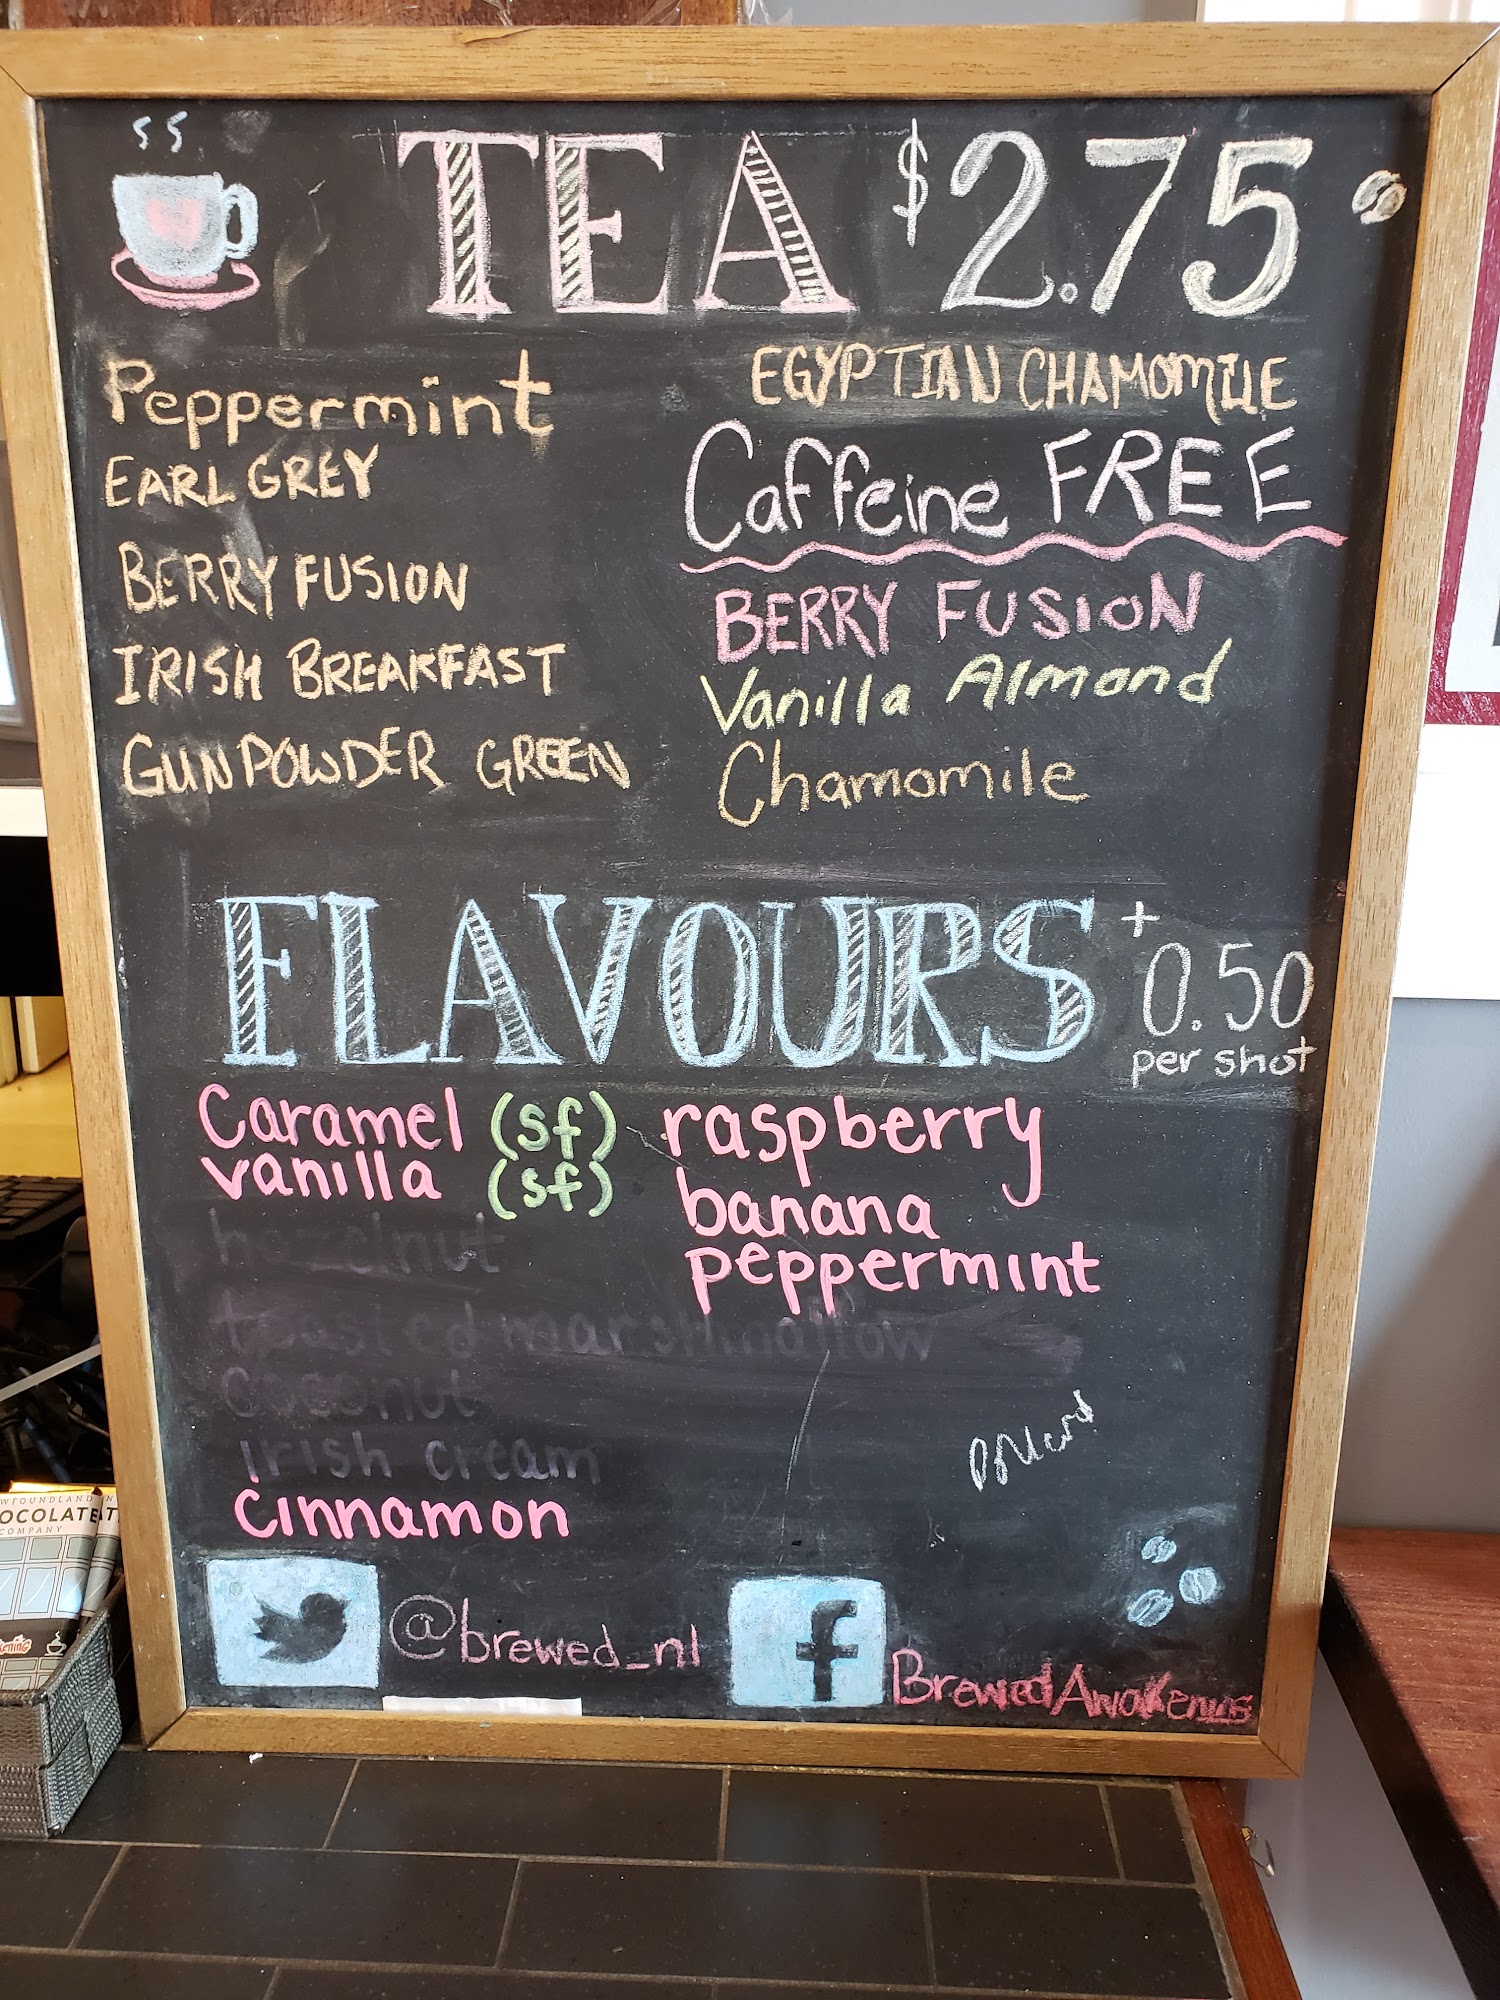 TEA $2.75
Peppermint
EARL GREY
BERRY FUSION
IRISH BREAKFAST
GUNPOWDER GREEN
EGYPTIAN CHAMOMILE
Caffeine FREE
BERRY FUSION
Vanilla Almond
Chamomile
FLAVOURS +0.50
per shot
Caramel (sf)
vanilla (sf)
hazelnut
toasted marshmallow
coconut
irish cream
cinnamon
raspberry
banana
peppermint
@brewed_nl
f BrewedAwakenings
OCOLATE
COMPANY